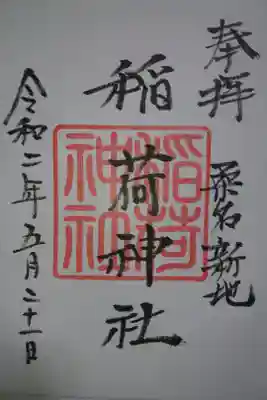 奉拝
桑名新地
稲荷神社
稲荷神社
令和二年五月二十一日